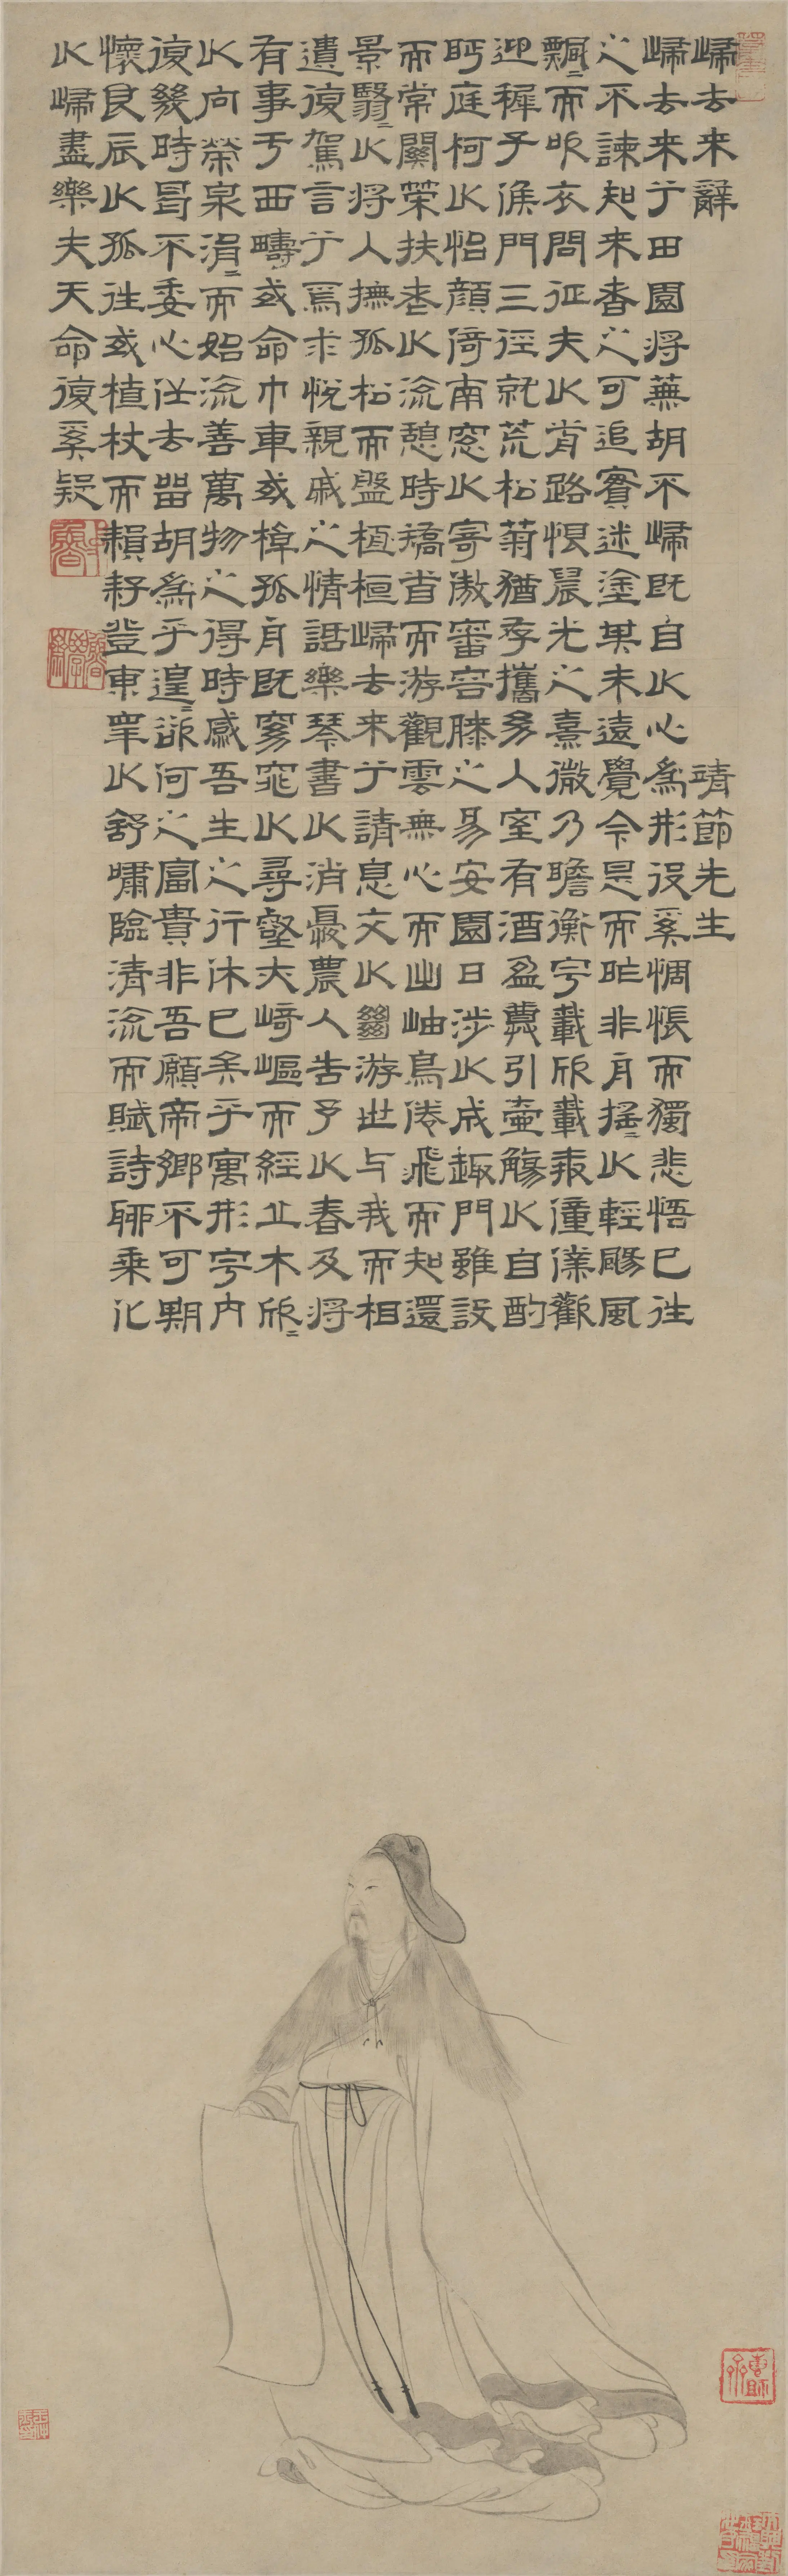 歸去来辭　靖節先生
歸去来兮田園将蕪胡不歸既自以心為形役奚惆悵而獨悲悟已往
之不諫知来者之可追實迷塗其未遠覺今是而昨非舟搖〻以輕颺風
飄〻而吹衣問征夫以前路恨晨光之熹微乃瞻衡宇載欣載奔僮僕歡
迎稺子候門三徑就荒松菊猶存攜幼入室有酒盈罇引壺觴以自酌
眄庭柯以怡顏倚南窓以寄傲審容膝之易安園日涉以成趣門雖設
而常關策扶老以流憩時矯首而游觀雲無心而出岫鳥倦飛而知還
景翳〻以将入撫孤松而盤桓桓歸去来兮請息交以絕游世与我而相
遺復駕言兮焉求悅親戚之情話樂琴書以消憂農人告予以春及将
有事于西疇或命巾車或棹孤舟既窈窕以尋壑亦崎嶇而經丘木欣〻
以向榮泉涓〻而始流善萬物之得時感吾生之行休已矣乎寓形宇内
復幾時曷不委心任去留胡為乎遑〻欲何之富貴非吾願帝鄉不可期
懷良辰以孤往或植杖而耘耔登東皋以舒嘯臨清流而賦詩聊乘化
以歸盡樂夫天命復奚疑